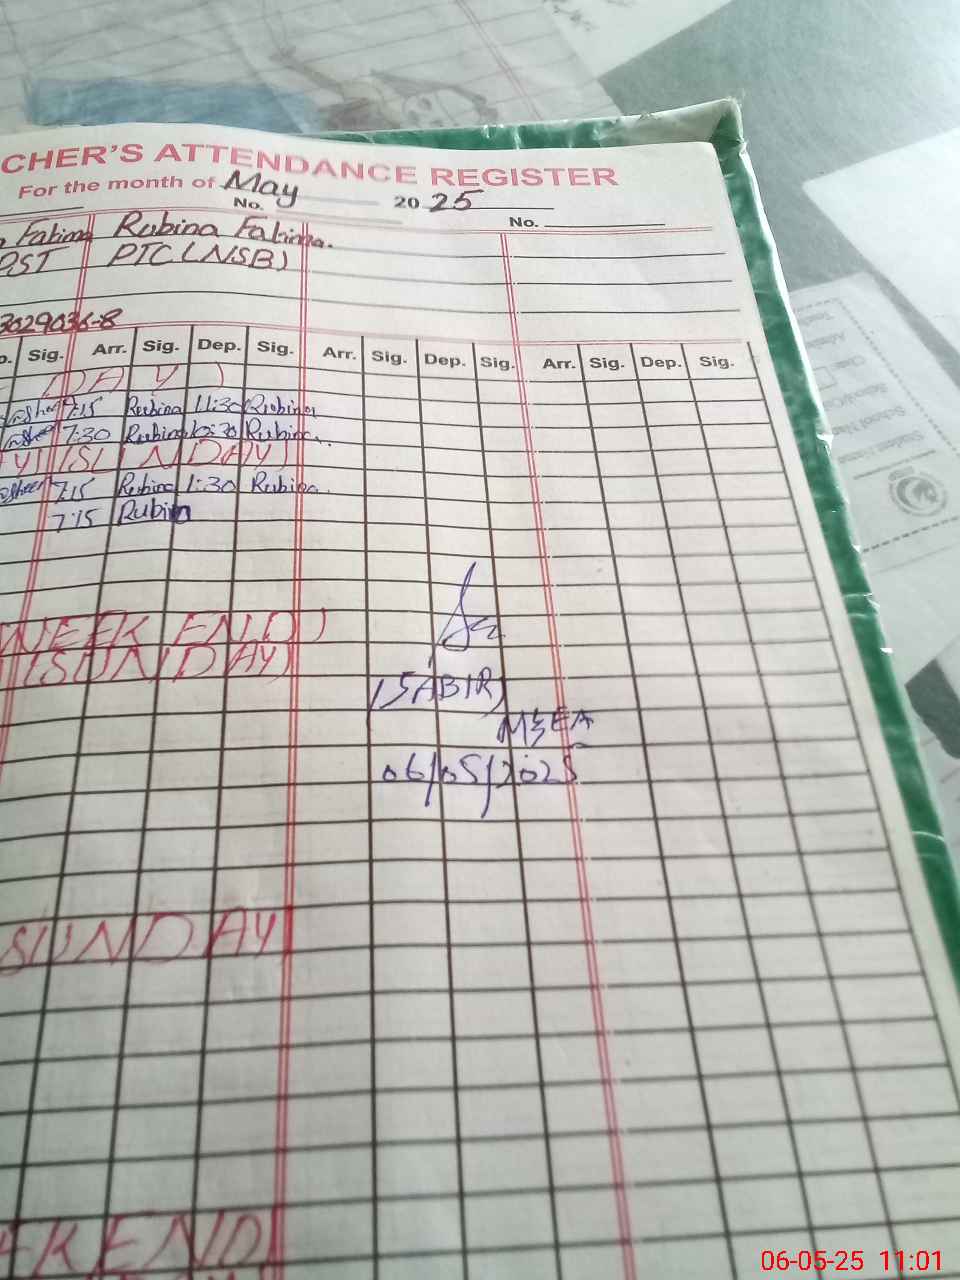 CHER'S ATTENDANCE REGISTER
For the month of May 2025
No. No.
Fatima Rubina Fatima.
PST PTC (NSB)
3029036-8
Sig. Arr. Sig. Dep. Sig. Arr. Sig. Dep. Sig. Arr. Sig. Dep. Sig.
DAY)
7:15 Rubina 11:30 Rubina
7:30 Rubina 10:30 Rubina
Y) (SUNDAY)
7:15 Rubina 1:30 Rubina
7:15 Rubina
WEEK END)
(SUNDAY)
(SABIR)
MEA
06/05/2025
SUNDAY
EKEND
06-05-25 11:01